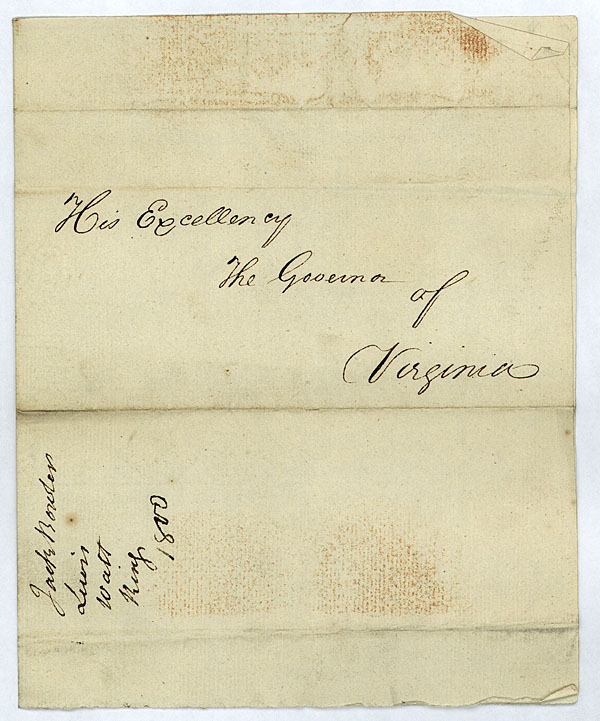 His Excellency
The Governor
of
Virginia
Jack Bowler
Lewis
Watt
King
1800